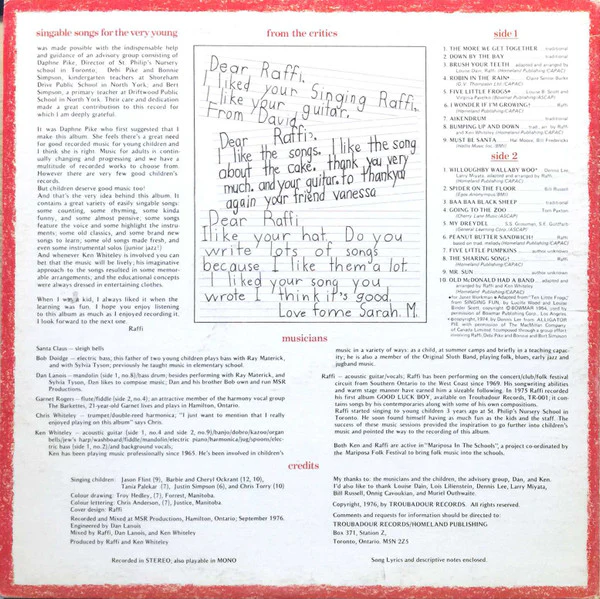 singable songs for the very young
was made possible with the indispensable help
and guidance of an advisory group consisting of
Daphne Pike, Director of St. Philip's Nursery
school in Toronto, Debi Pike and Bonnie
Simpson, kindergarten teachers at Shoreham
Drive Public School in North York, and Bert
Simpson, a primary teacher at Driftwood Public
School in North York. Their care and dedication
made a great contribution to this record for
which I am deeply grateful.
It was Daphne Pike who first suggested that I
make this album. She feels there's a great need
for good recorded music for young children and
I think she is right. Music for adults is contin-
ually changing and progressing and we have a
multitude of recorded works to choose from.
However there are very few good children's
records.
But children deserve good music too!
And that's the very idea behind this album. It
contains a great variety of easily singable songs:
some counting, some rhyming, some kinda
funny, and some almost pensive; some songs
feature the voice and some highlight the instru-
ments; some old classics, and some brand new
songs to learn; some old songs made fresh, and
even some instrumental solos (junior jazz!)
And whenever Ken Whiteley is involved you can
bet that the music will be lively; his imaginative
approach to the songs resulted in some memor-
able arrangements, and the educational concepts
were always dressed in entertaining clothes.
When I was a kid, I always liked it when the
learning was fun. I hope you enjoy listening
to this album as much as I enjoyed recording it.
I look forward to the next one.
Raffi
from the critics
Dear Raffi,
I liked your Singing Raffi.
I like your guitar.
From David
Dear Raffi,
I like the songs. I like the song
about the cake. thank you very
much. and your guitar. to thankyou
again your friend vanessa
Dear Raffi
I like your hat. Do you
write lots of songs
because I like them a lot.
I liked your song you
wrote I think it's good.
Love fome Sarah. M.
side 1
1. THE MORE WE GET TOGETHER traditional
2. DOWN BY THE BAY traditional
3. BRUSH YOUR TEETH adapted and arranged by
Louise Dain, Raffi. (Homeland Publishing/CAPAC)
4. ROBIN IN THE RAIN* Claire Senior Burke
(G.V. Thompson Ltd./CAPAC)
5. FIVE LITTLE FROGS• Louise B. Scott and
Virginia Pavelko (Bowmar/ASCAP)
6. I WONDER IF I'M GROWING† Raffi
(Homeland Publishing/CAPAC)
7. AIKENDRUM traditional
8. BUMPING UP AND DOWN trad., arr. by Raffi and
Ken Whiteley (Homeland Publishing/CAPAC)
9. MUST BE SANTA Hal Moore, Bill Fredericks
(Hollis Music Inc./BMI)
side 2
1. WILLOUGHBY WALLABY WOO• Dennis Lee,
Larry Miyata, adapted and arranged by Raffi,
(Homeland Publishing/CAPAC)
2. SPIDER ON THE FLOOR Bill Russell
3. BAA BAA BLACK SHEEP traditional
4. GOING TO THE ZOO Tom Paxton
(Cherry Lane Music/ASCAP)
5. MY DREYDEL S.S. Grossman, S.E. Goldfarb
6. PEANUT BUTTER SANDWICH† Raffi
based on trad. melody (Homeland Publishing/CAPAC)
7. FIVE LITTLE PUMPKINS author unknown
8. THE SHARING SONG† Raffi
(Homeland Publishing/CAPAC)
9. MR. SUN author unknown
10. OLD McDONALD HAD A BAND adapted
and arranged by Raffi, Ken Whiteley
(Homeland Publishing/CAPAC)
musicians
Santa Claus — sleigh bells
Bob Doidge — electric bass; this father of two young children plays bass with Ray Materick,
and with Sylvia Tyson; previously he taught music to elementary school.
Dan Lanois — mandolin (side 1, no.8)/bass drum; besides performing with Ray Materick, and
Sylvia Tyson, Dan likes to compose music; Dan and his brother Bob own and run MSR
Productions.
Garnet Rogers — flute/fiddle (side 2, no.4); an attractive member of the harmony vocal group
The Barkettes, 21-year-old Garnet lives and plays in Hamilton, Ontario.
Chris Whiteley — trumpet/double/reed harmonica; "I just want to mention that I really
enjoyed playing on this album" says Chris.
Ken Whiteley — acoustic guitar (side 1, no.4 and side 2, no.9)/banjo/dobro/kazoo/organ
bells/jew's harp/washboard/fiddle/mandolin/electric piano/harmonica/jug/spoons/elec-
tric bass (side 1, no.2)/and background vocals;
Ken has been playing music professionally since 1965. He's been involved in children's
music in a variety of ways: as a child, at summer camps and briefly in a teaching capac-
ity; he is also a member of the Original Sloth Band, playing folk, blues, early jazz and
jugband music.
Raffi — acoustic guitar/vocals; Raffi has been performing on the concert/club/folk festival
circuit from Southern Ontario to the West Coast since 1969. His songwriting abilities
and warm stage manner have earned him a sizeable following. In 1975 Raffi recorded
his first album GOOD LUCK BOY, available on Troubadour Records, TR-001; it con-
tains songs by his contemporaries along with some of his own compositions.
Raffi started singing to young children 3 years ago at St. Philip's Nursery School in
Toronto. He soon found himself having as much fun as the kids and the staff. The
success of these music sessions provided the inspiration to go further into children's
music and opened the way to the recording of this album.
Both Ken and Raffi are active in "Mariposa In The Schools", a project co-ordinated by
the Mariposa Folk Festival to bring folk music into the schools.
credits
Singing children: Jason Flint (9), Barbie and Cheryl Ockrant (12, 10),
Tania Palekar (7), Justin Simpson (6), and Chris Torry (10)
Colour drawing: Troy Hedley, (7), Forrest, Manitoba.
Colour lettering: Chris Anderson, (7), Justice, Manitoba
Cover design: Raffi
Recorded and Mixed at MSR Productions, Hamilton, Ontario; September 1976.
Engineered by Dan Lanois
Mixed by Raffi, Dan Lanois, and Ken Whiteley
Produced by Raffi and Ken Whiteley
My thanks to: the musicians and the children, the advisory group, Dan, and Ken.
I'd also like to thank Louise Dain, Lois Lilienstein, Dennis Lee, Larry Miyata,
Bill Russell, Onnig Cavoukian, and Muriel Outhwaite.
Copyright, 1976, by TROUBADOUR RECORDS. All rights reserved.
Comments and requests for information should be directed to:
TROUBADOUR RECORDS/HOMELAND PUBLISHING
Box 371, Station Z,
Toronto, Ontario. M5N 2Z5
Recorded in STEREO, also playable in MONO
Song Lyrics and descriptive notes enclosed.